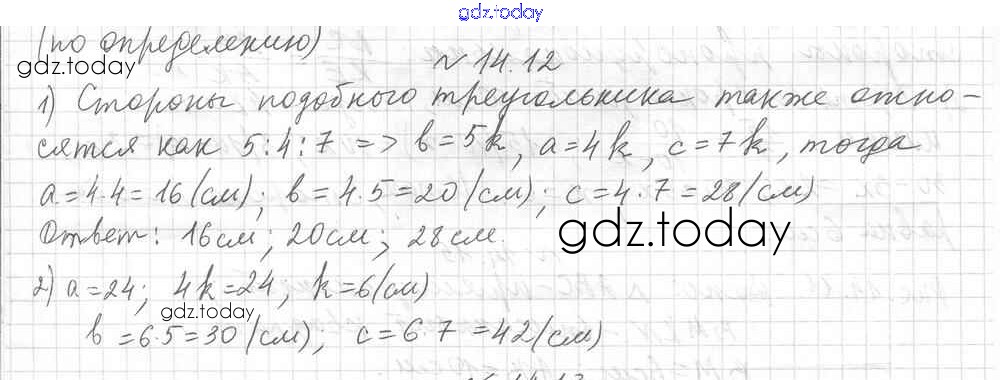 gdz.today
(по определению)
gdz.today
№ 14.12
1) Стороны подобного треугольника также отно-
сятся как 5:4:7 => b = 5k, a = 4k, c = 7k, тогда
a = 4·4 = 16 (см); b = 4·5 = 20 (см); c = 4·7 = 28 (см)
Ответ: 16 см; 20 см; 28 см.
gdz.today
2) a = 24; 4k = 24, k = 6 (см)
gdz.today
b = 6·5 = 30 (см); c = 6·7 = 42 (см)